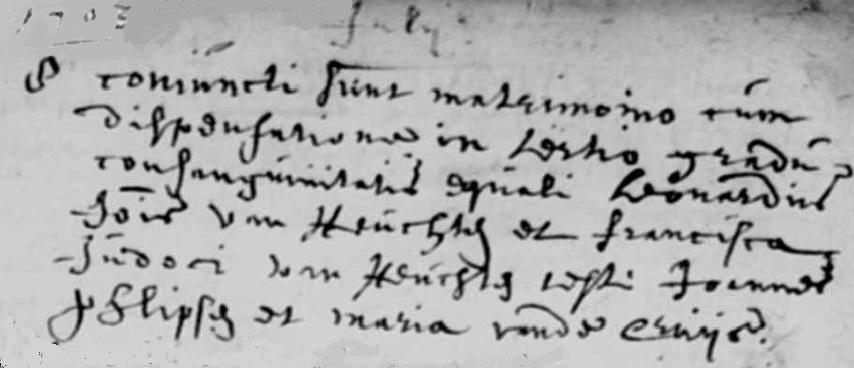 1703 July
8 coniuncti sunt matrimonio cum
dispensatione in tertio gradu
consanguinitatis equali Leonardus
Jois van Heuchten et francisca
Judoci van Heuchten testes Joannes
flipsen et maria vande